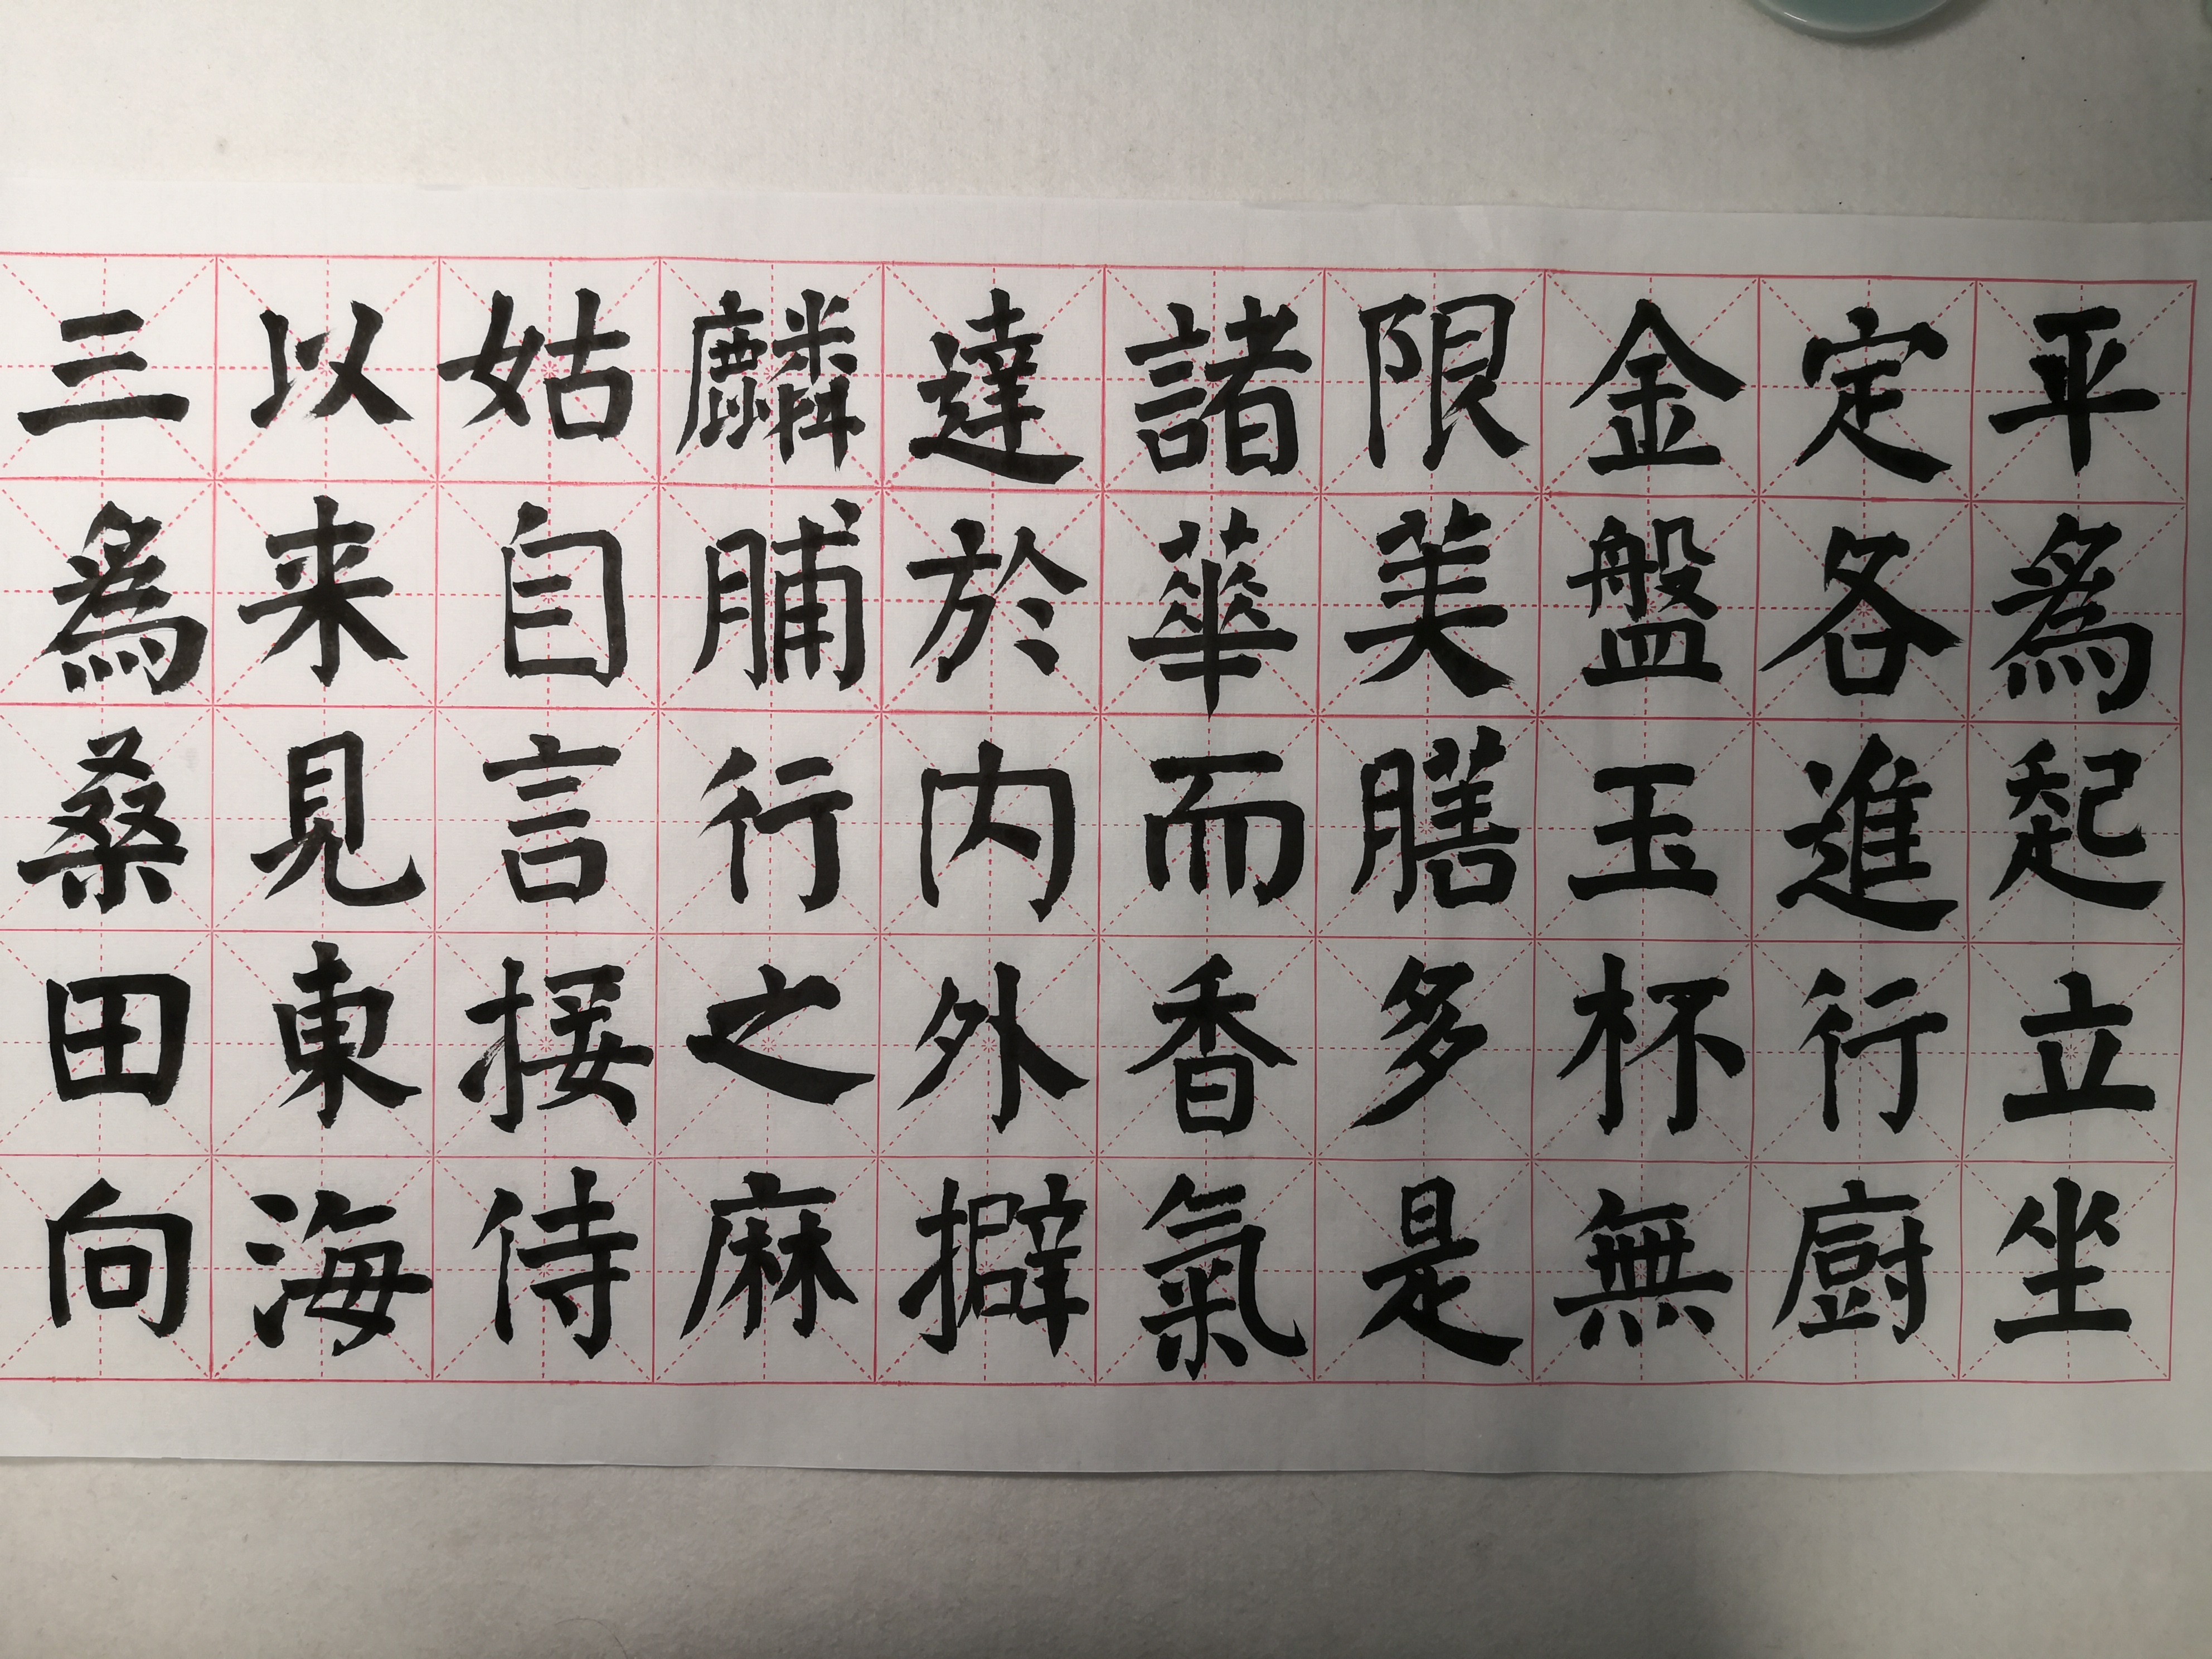 平爲起立坐
定各進行廚
金盤玉杯無
限美膳多是
諸華而香氣
達於内外擗
麟脯行之麻
姑自言接侍
以来見東海
三爲桑田向